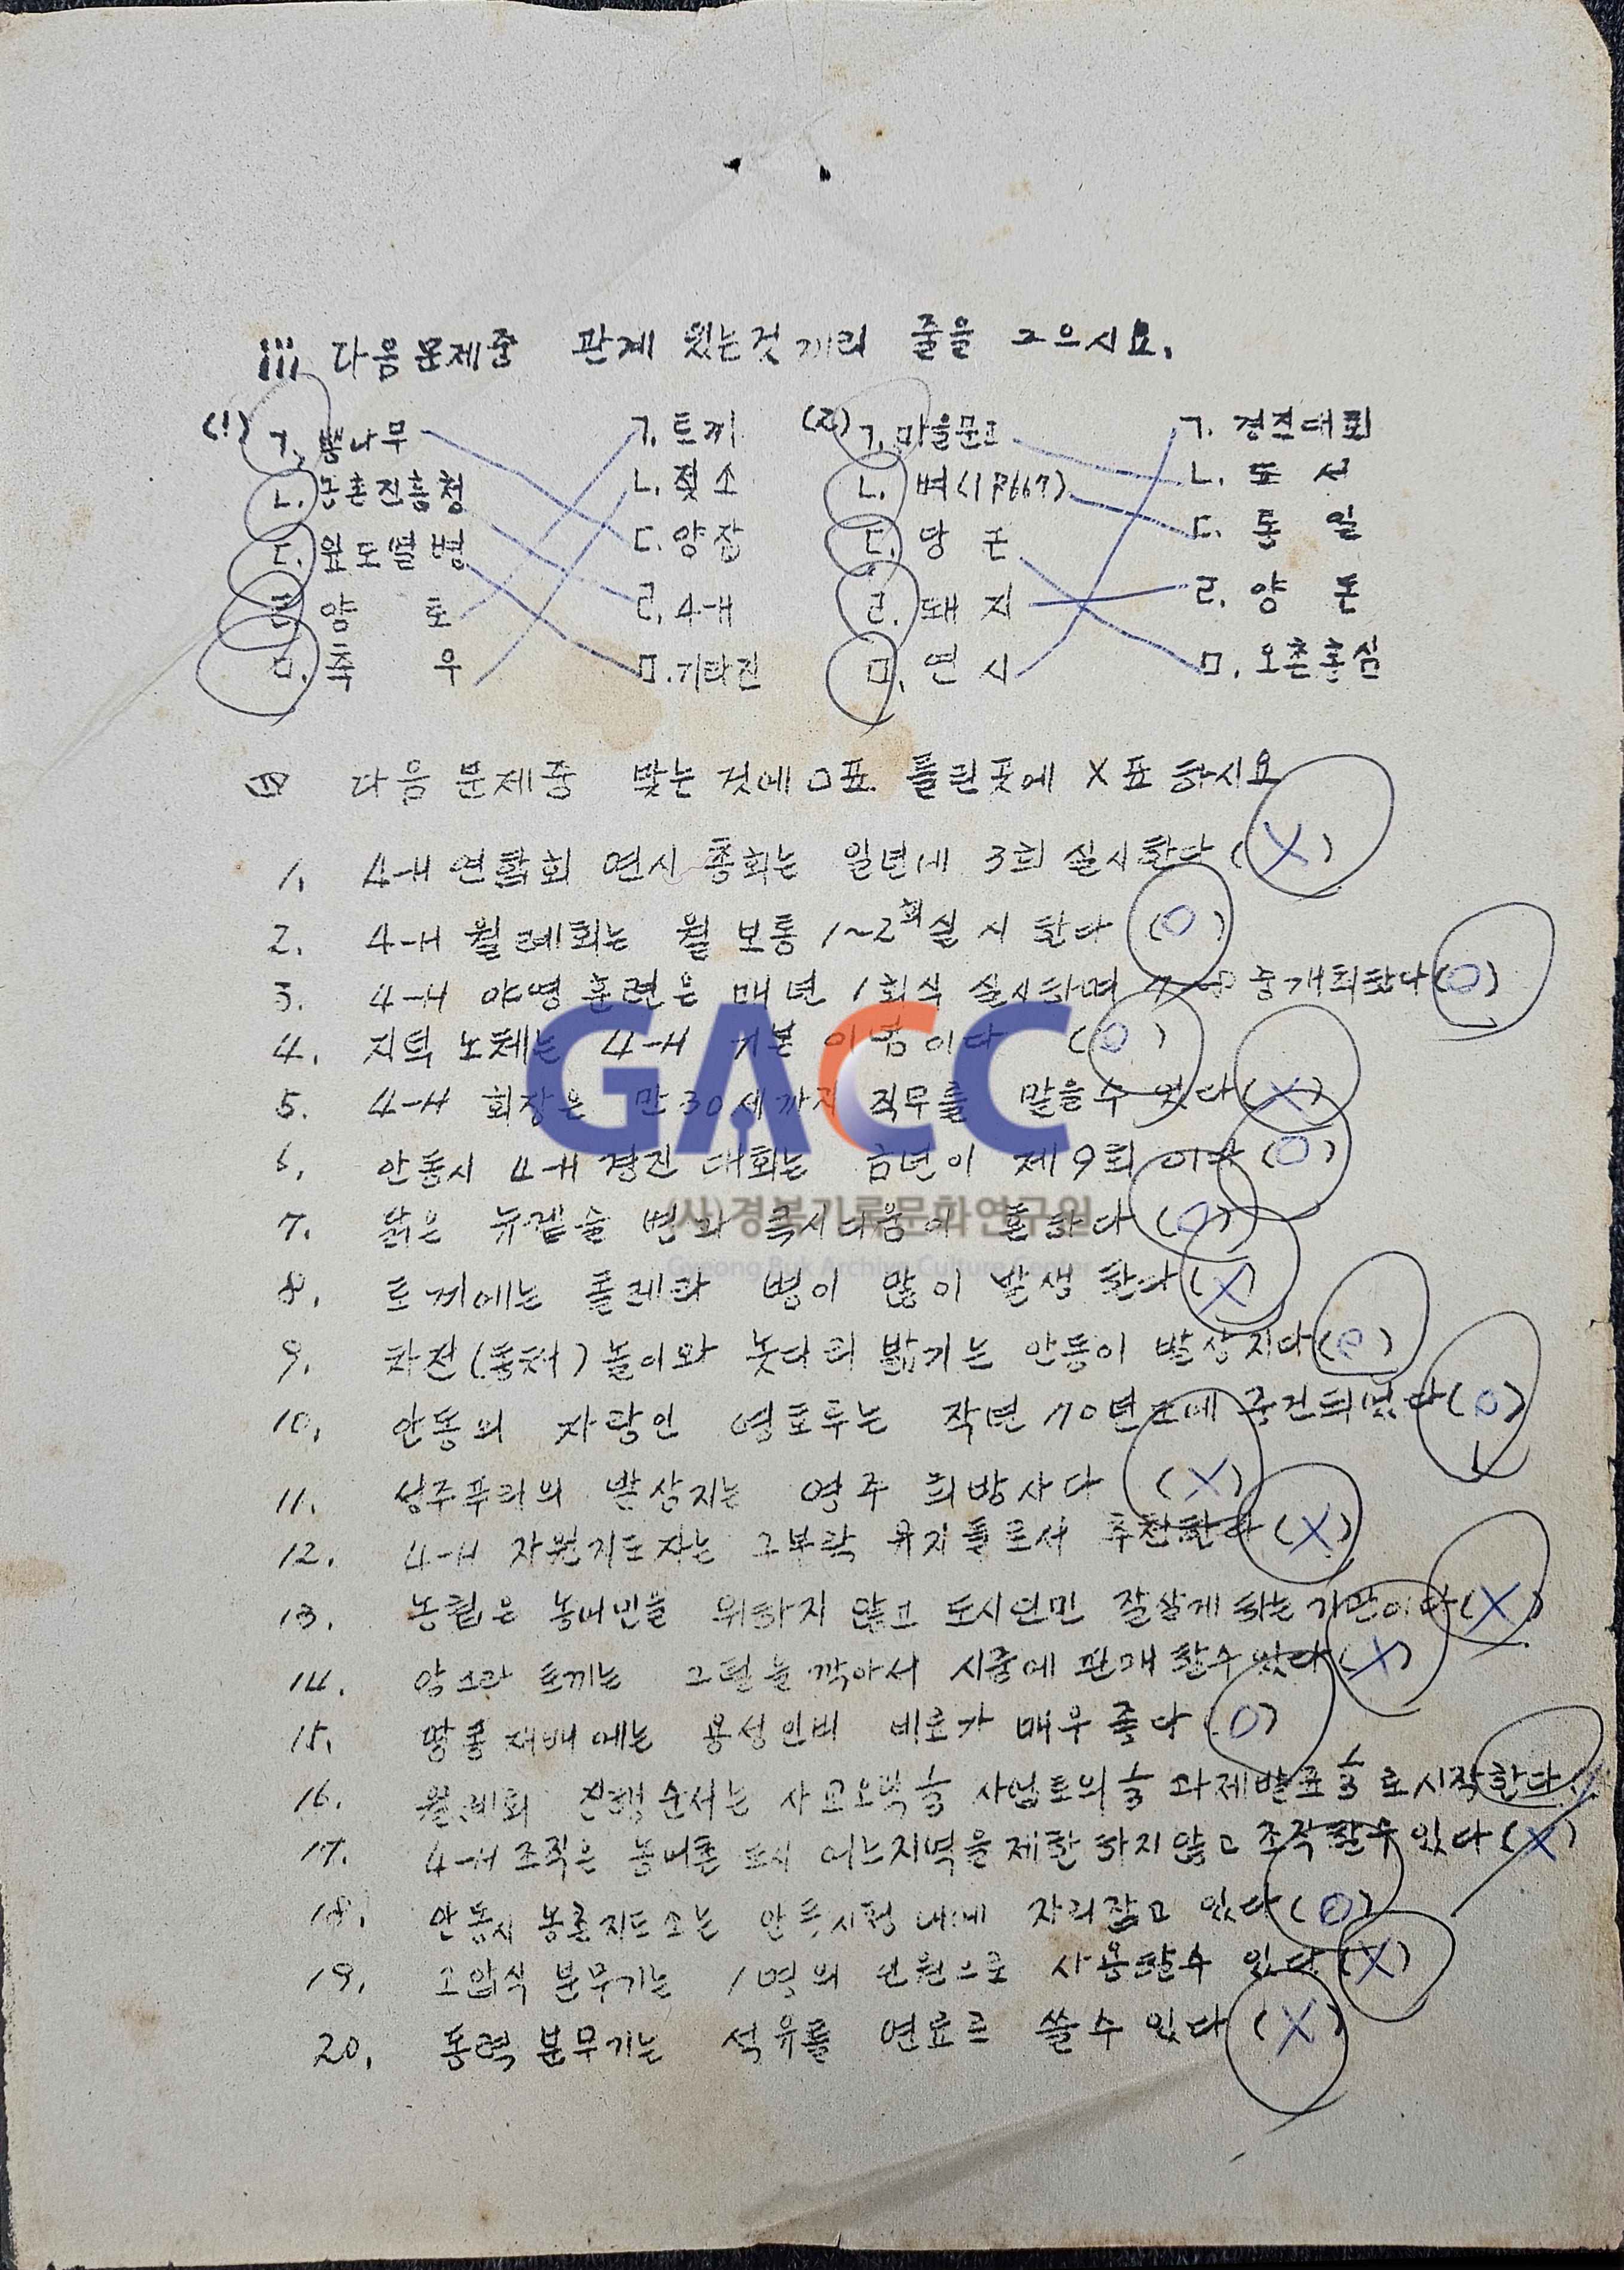 iii 다음문제중 관계 있는것 끼리 줄을 그으시요.
(1) ㄱ. 뽕나무 ㄱ. 토끼 (2) ㄱ. 마을문고 ㄱ. 경진대회
ㄴ. 농촌진흥청 ㄴ. 젖소 ㄴ. 벼(IR667) ㄴ. 도서
ㄷ. 잎도열병 ㄷ. 양잠 ㄷ. 당근 ㄷ. 통일
ㄹ. 양토 ㄹ. 4-H ㄹ. 돼지 ㄹ. 양돈
ㅁ. 축우 ㅁ. 기타진 ㅁ. 연시 ㅁ. 오촌홍심
다음 문제중 맞는 것에 O표 틀린곳에 X표 하시요
1. 4-H 연합회 연시 총회는 일년에 3회 실시한다 (X)
2. 4-H 월례회는 월 보통 1~2회실시 한다 (O)
3. 4-H 야영 훈련은 매년 1회식 실시하며 중개최한다 (O)
4. 지덕노체는 4-H 기본 이념이다 (O)
5. 4-H 회장은 만30세까지 직무를 맡을수 있다 (X)
6. 안동시 4-H 경진대회는 금년이 제9회 이다 (O)
7. 닭은 뉴캩슬 병과 콕시디움이 흔하다 (O)
8. 토끼에는 콜레라 병이 많이 발생 한다 (X)
9. 차전(동채)놀이와 놋다리 밟기는 안동이 발상지다 (O)
10. 안동의 자랑인 영호루는 작년 70년도에 중건되었다 (O)
11. 성주푸리의 발상지는 영주 희방사다 (X)
12. 4-H 자원지도자는 그부락 유지들로서 추천한다 (X)
13. 농협은 농어민을 위하지 않고 도시인만 잘살게 하는 기관이다 (X)
14. 앙고라 토끼는 그털을 깍아서 시중에 판매 할수 있다 (X)
15. 땅콩재배에는 용성인비 비료가 매우 좋다 (O)
16. 월례회 진행순서는 사교오락 ⅓ 사업토의 ⅓ 과제발표 ⅓ 로시작한다
17. 4-H 조직은 농어촌 도시 어느지역을 제한 하지않고 조직할수 있다 (X)
18. 안동시 농촌지도소는 안동시청 내에 자리잡고 있다 (O)
19. 고압식 분무기는 1명의 인원으로 사용할수 있다 (X)
20. 동력분무기는 석유를 연료로 쓸수 있다 (X)
GACC
(사)경북기록문화연구원
Gyeong Buk Archive Culture Center